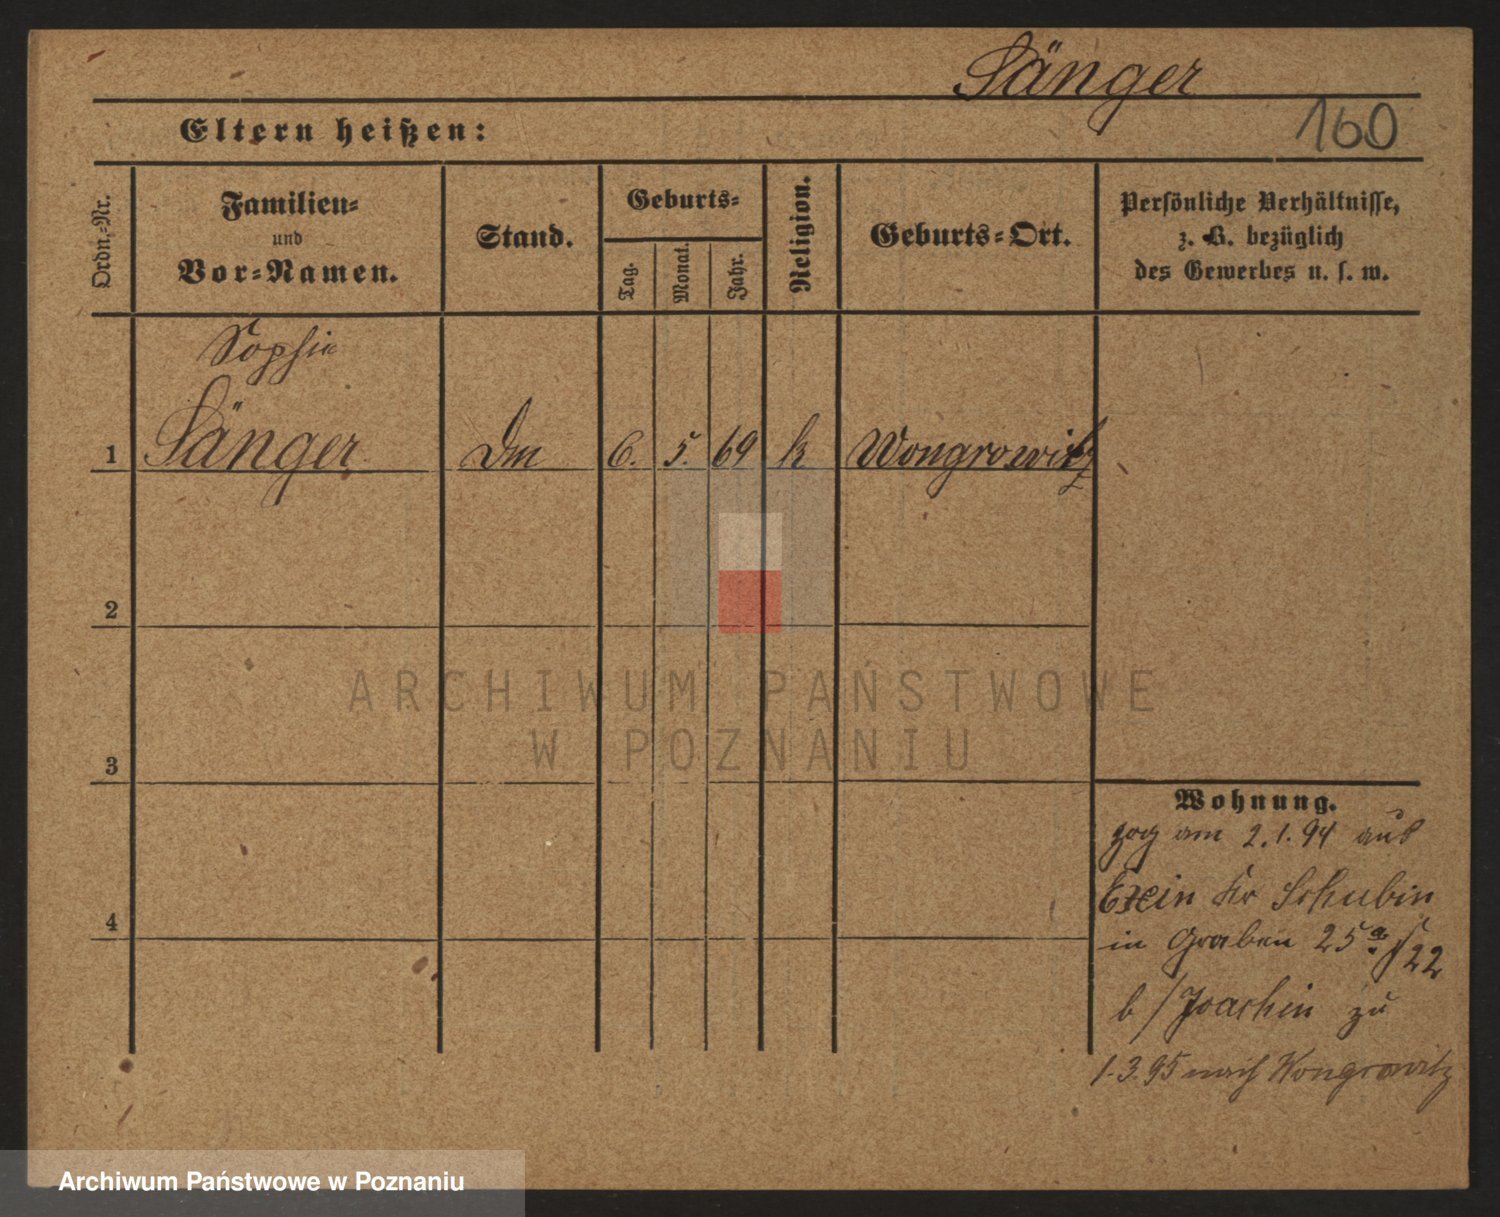 Sänger
160
Eltern heißen:
Ordn.-Nr.
Familien-
und
Vor-Namen.
Stand.
Geburts-
Tag.
Monat.
Jahr.
Religion.
Geburts-Ort.
Persönliche Verhältnisse,
z. B. bezüglich
des Gewerbes u. s. w.
Sophie
1 Sänger Dm 6. 5. 69 k Wongrowitz
2
3
4
ARCHIWUM PAŃSTWOWE
W POZNANIU
Wohnung.
zog am 2.1.94 aus
Exin Kr Schubin
in Graben 25a 22
b/Joachin zu
1.3.95 nach Wongrowitz
Archiwum Państwowe w Poznaniu